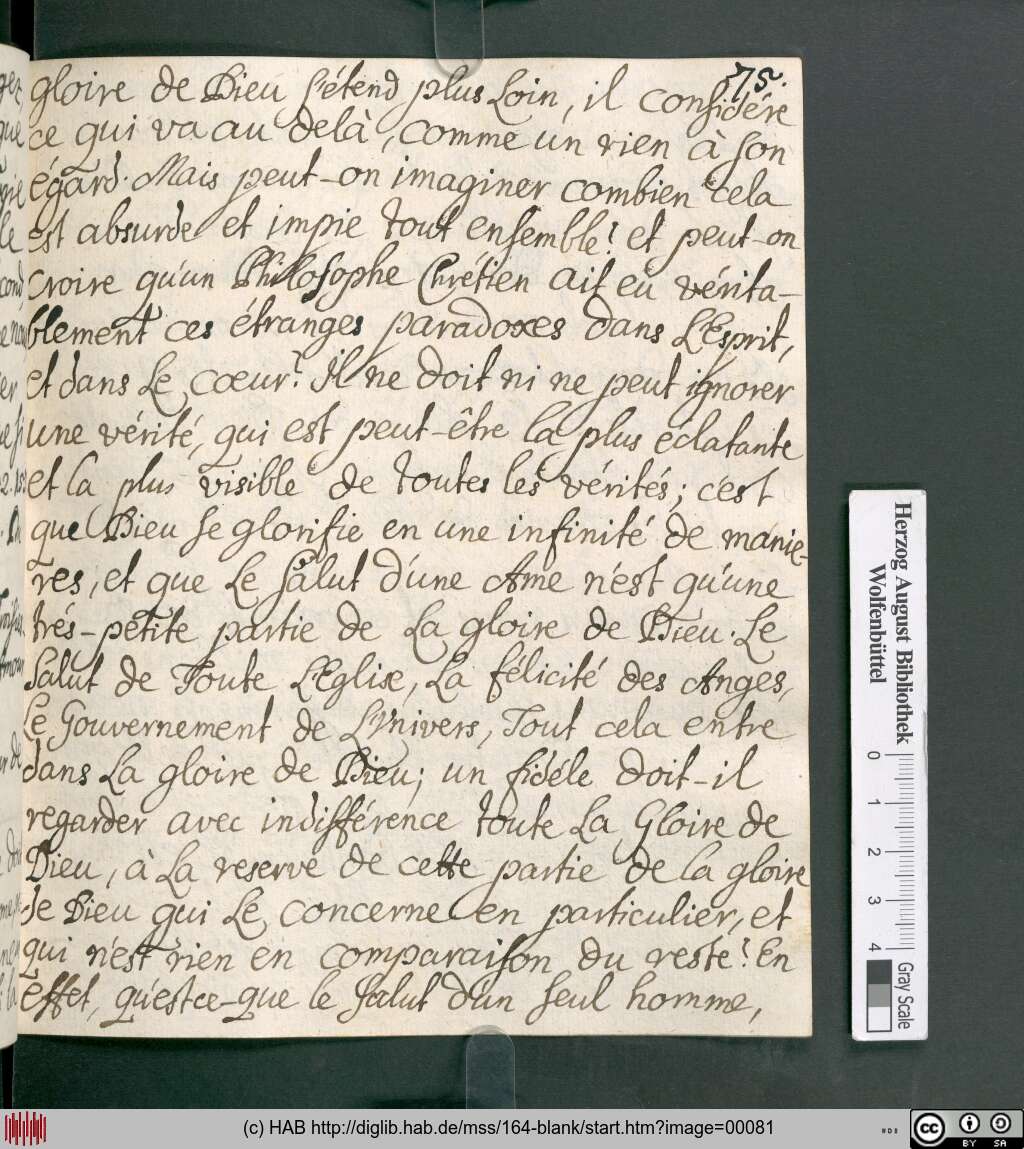 75.
gloire de Dieu s'étend plus Loin, il considére
ce qui va au delà, comme un rien à son
égard. Mais peut-on imaginer combien cela
est absurde et impie tout ensemble? et peut-on
croire qu'un Philosophe Chrétien ait eû vérita-
blement ces étranges paradoxes dans L'Esprit,
et dans Le cœur? Il ne doit ni ne peut ignorer
une vérité, qui est peut-être la plus éclatante
et la plus visible de toutes les vérités; c'est
que Dieu se glorifie en une infinité de manie-
res, et que Le Salut d'une Ame n'est qu'une
trés-petite partie de La gloire de Dieu. Le
Salut de Toute L'Eglise, La félicité des Anges,
Le Gouvernement de L'Univers, Tout cela entre
dans La gloire de Dieu; un fidéle doit-il
regarder avec indifférence toute La Gloire de
Dieu, à La reserve de cette partie de la gloire
de Dieu qui Le concerne en particulier, et
qui n'est rien en comparaison du reste? En
effet, qu'estce-que le Salut d'un seul homme,
Herzog August Bibliothek
Wolfenbüttel
0 1 2 3 4
Gray Scale
(c) HAB http://diglib.hab.de/mss/164-blank/start.htm?image=00081
cc BY SA